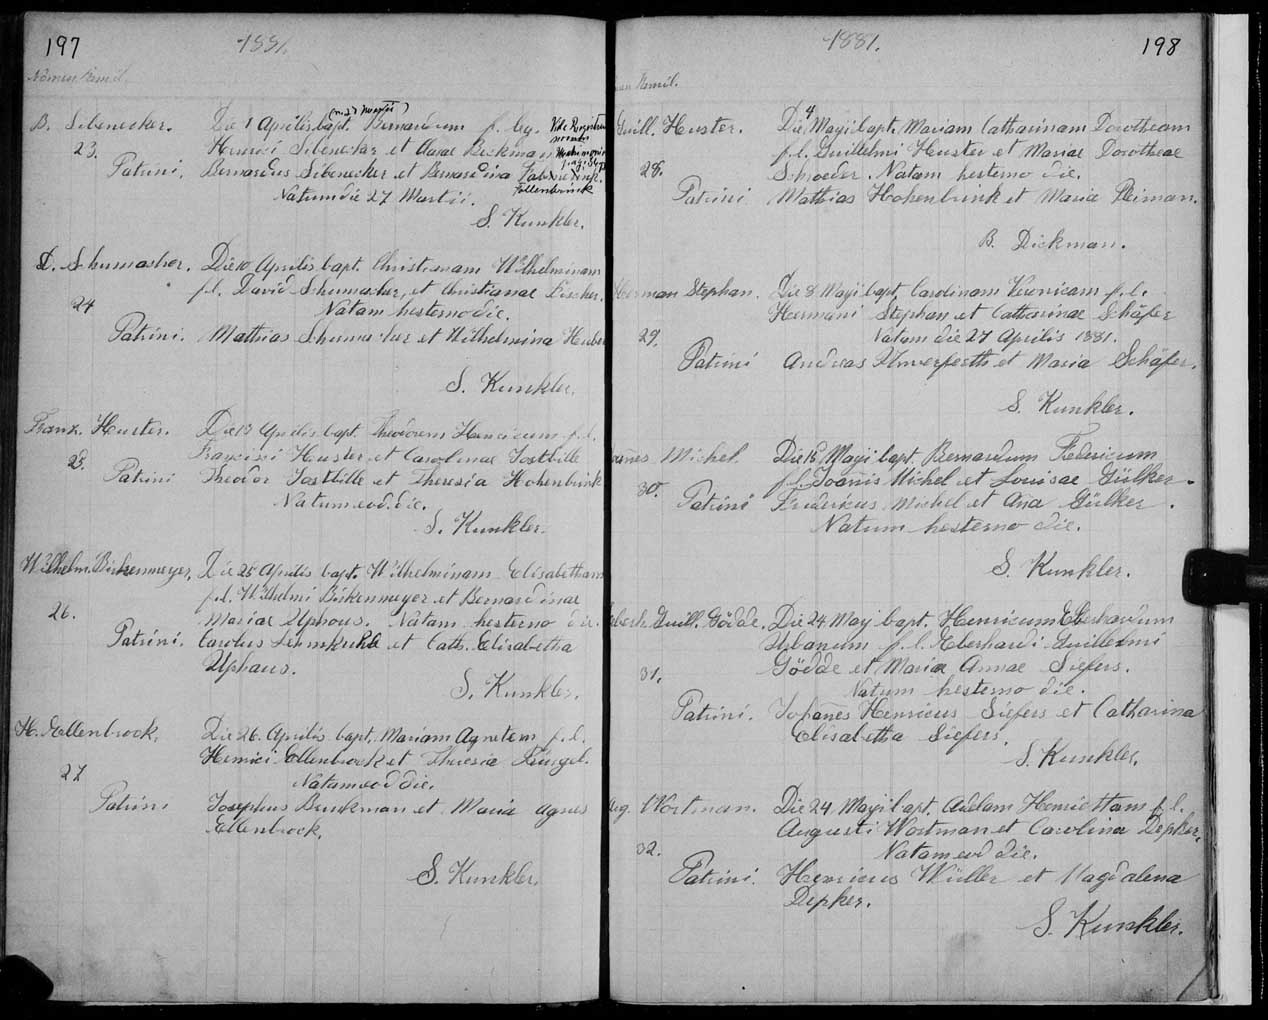 197
1881.
Nomen Famil.
B. Sibenecker. Die 1 Aprilis bapt. Bernardum f. leg.
23. Henrici Sibenecker et Annae Beckman
Patrini. Bernardus Sibenecker et Bernardina
Follenbrink
Natum die 27 Martii.
S. Kunkler.
D. Schumacher. Die 10 Aprilis bapt. Christianam Wilhelminam
f.l. David Schumacher, et Christianae Fischer.
24 Natam hesterno die.
Patrini. Mathias Schumacher et Wilhelmina
S. Kunkler.
Franz. Huster. Die 19 Aprilis bapt. Theodorum Henricum f.l.
Francisci Huster et Carolinae Jostville
25. Patrini Theodor Jostville et Theresia Hohenbrink
Natum eod. die.
S. Kunkler.
Wilhelm. Birkenmeyer, Die 25 Aprilis bapt. Wilhelminam Elisabetham
f.l. Wilhelmi Birkenmeyer et Bernardinae
26. Mariae Uphous. Natam hesterno die.
Patrini. Carolus Lehmkuhle et Cath. Elisabetha
Uphaus.
S. Kunkler.
H. Ellenbrock. Die 26. Aprilis bapt. Mariam Agnetem f.l.
Henrici Ellenbrock et Theresia
27 Natam eod die.
Patrini Josephus Brinkman et Maria Agnes
Ellenbrock.
S. Kunkler.
1881.
198
Famil.
Guill. Huster. Die 4 Maji bapt. Mariam Catharinam Dorotheam
f.l. Guillelmi Huster et Mariae Dorotheae
28. Schroeder. Natam hesterno die.
Patrini Mathias Hohenbrink et Maria Reiman.
B. Dickman.
Herman Stephan. Die 8 Maji bapt. Carolinam Veronicam f.l.
Hermani Stephan et Catharinae Schäfer
29. Natam die 27 Aprilis 1881.
Patrini Andreas Unverferth et Maria Schäfer.
S. Kunkler.
Michel. Die 15 Maji bapt. Bernardum Fredericum
f.l. Joannis Michel et Louisae Gülker.
30. Patrini Fridericus Michel et Ana Gülker.
Natum hesterno die.
S. Kunkler.
Guill. Gödde. Die 24 Maj bapt. Henricum Eberhardum
Urbanum f.l. Eberhardi Guillelmi
31. Gödde et Maria Annae Siefers.
Natum hesterno die.
Patrini. Johanes Henricus Siefers et Catharina
Elisabetha Siefers.
S. Kunkler.
Aug. Wortman. Die 24 Maji bapt. Adelam Henriettam f.l.
Augusti Wortman et Carolina Depker.
32. Natam eod die.
Patrini. Henricus Wüller et Magdalena
Depker.
S. Kunkler.